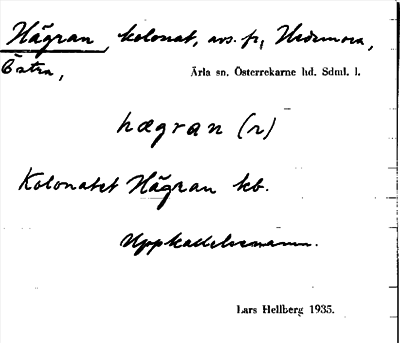 Hägran, kolonat, avs. fr. Hedemora,
Östra,
Ärla sn. Österrekarne hd. Sdml. l.
hægran (r)
Kolonatet Hägran kb.
Uppkallelsenamn.
Lars Hellberg 1935.